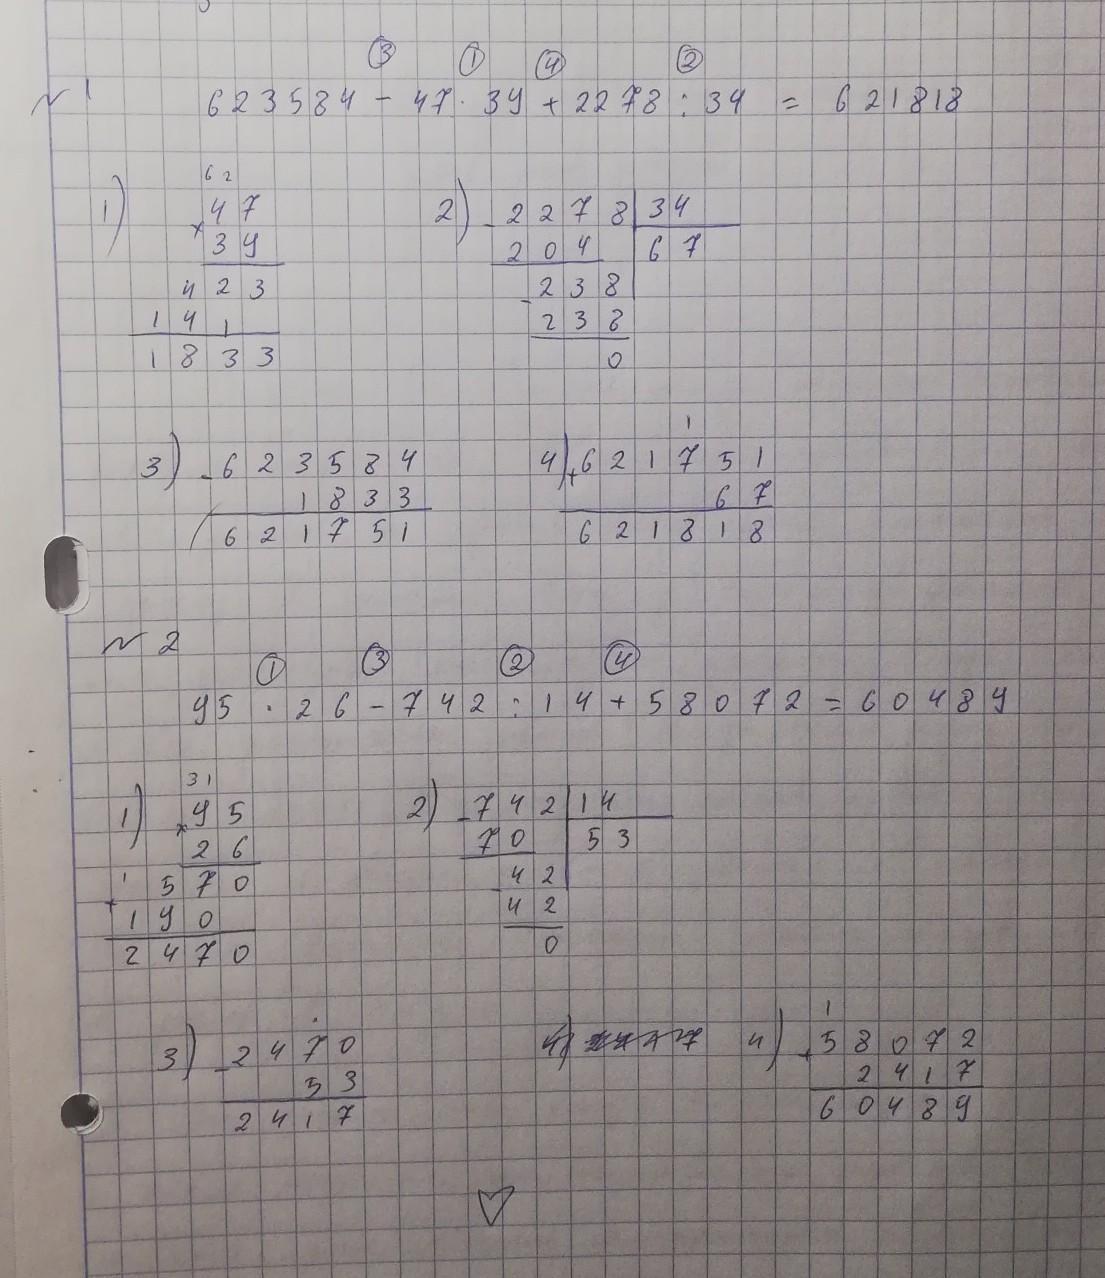 ③ ① ④ ②
№ 1 623584 - 47 · 39 + 2278 : 34 = 621818
62
1) 47 2) 2278 34
× 39 - 204 67
423 - 238
141 238
1833 0
1
3) - 623584 4) + 621751
1833 67
621751 621818
№ 2
① ③ ② ④
95 · 26 - 742 : 14 + 58072 = 60489
31
1) 95 2) - 742 14
× 26 70 53
1 570 - 42
+ 190 42
2470 0
1
3) - 2470 4) 4) + 58072
53 2417
2417 60489